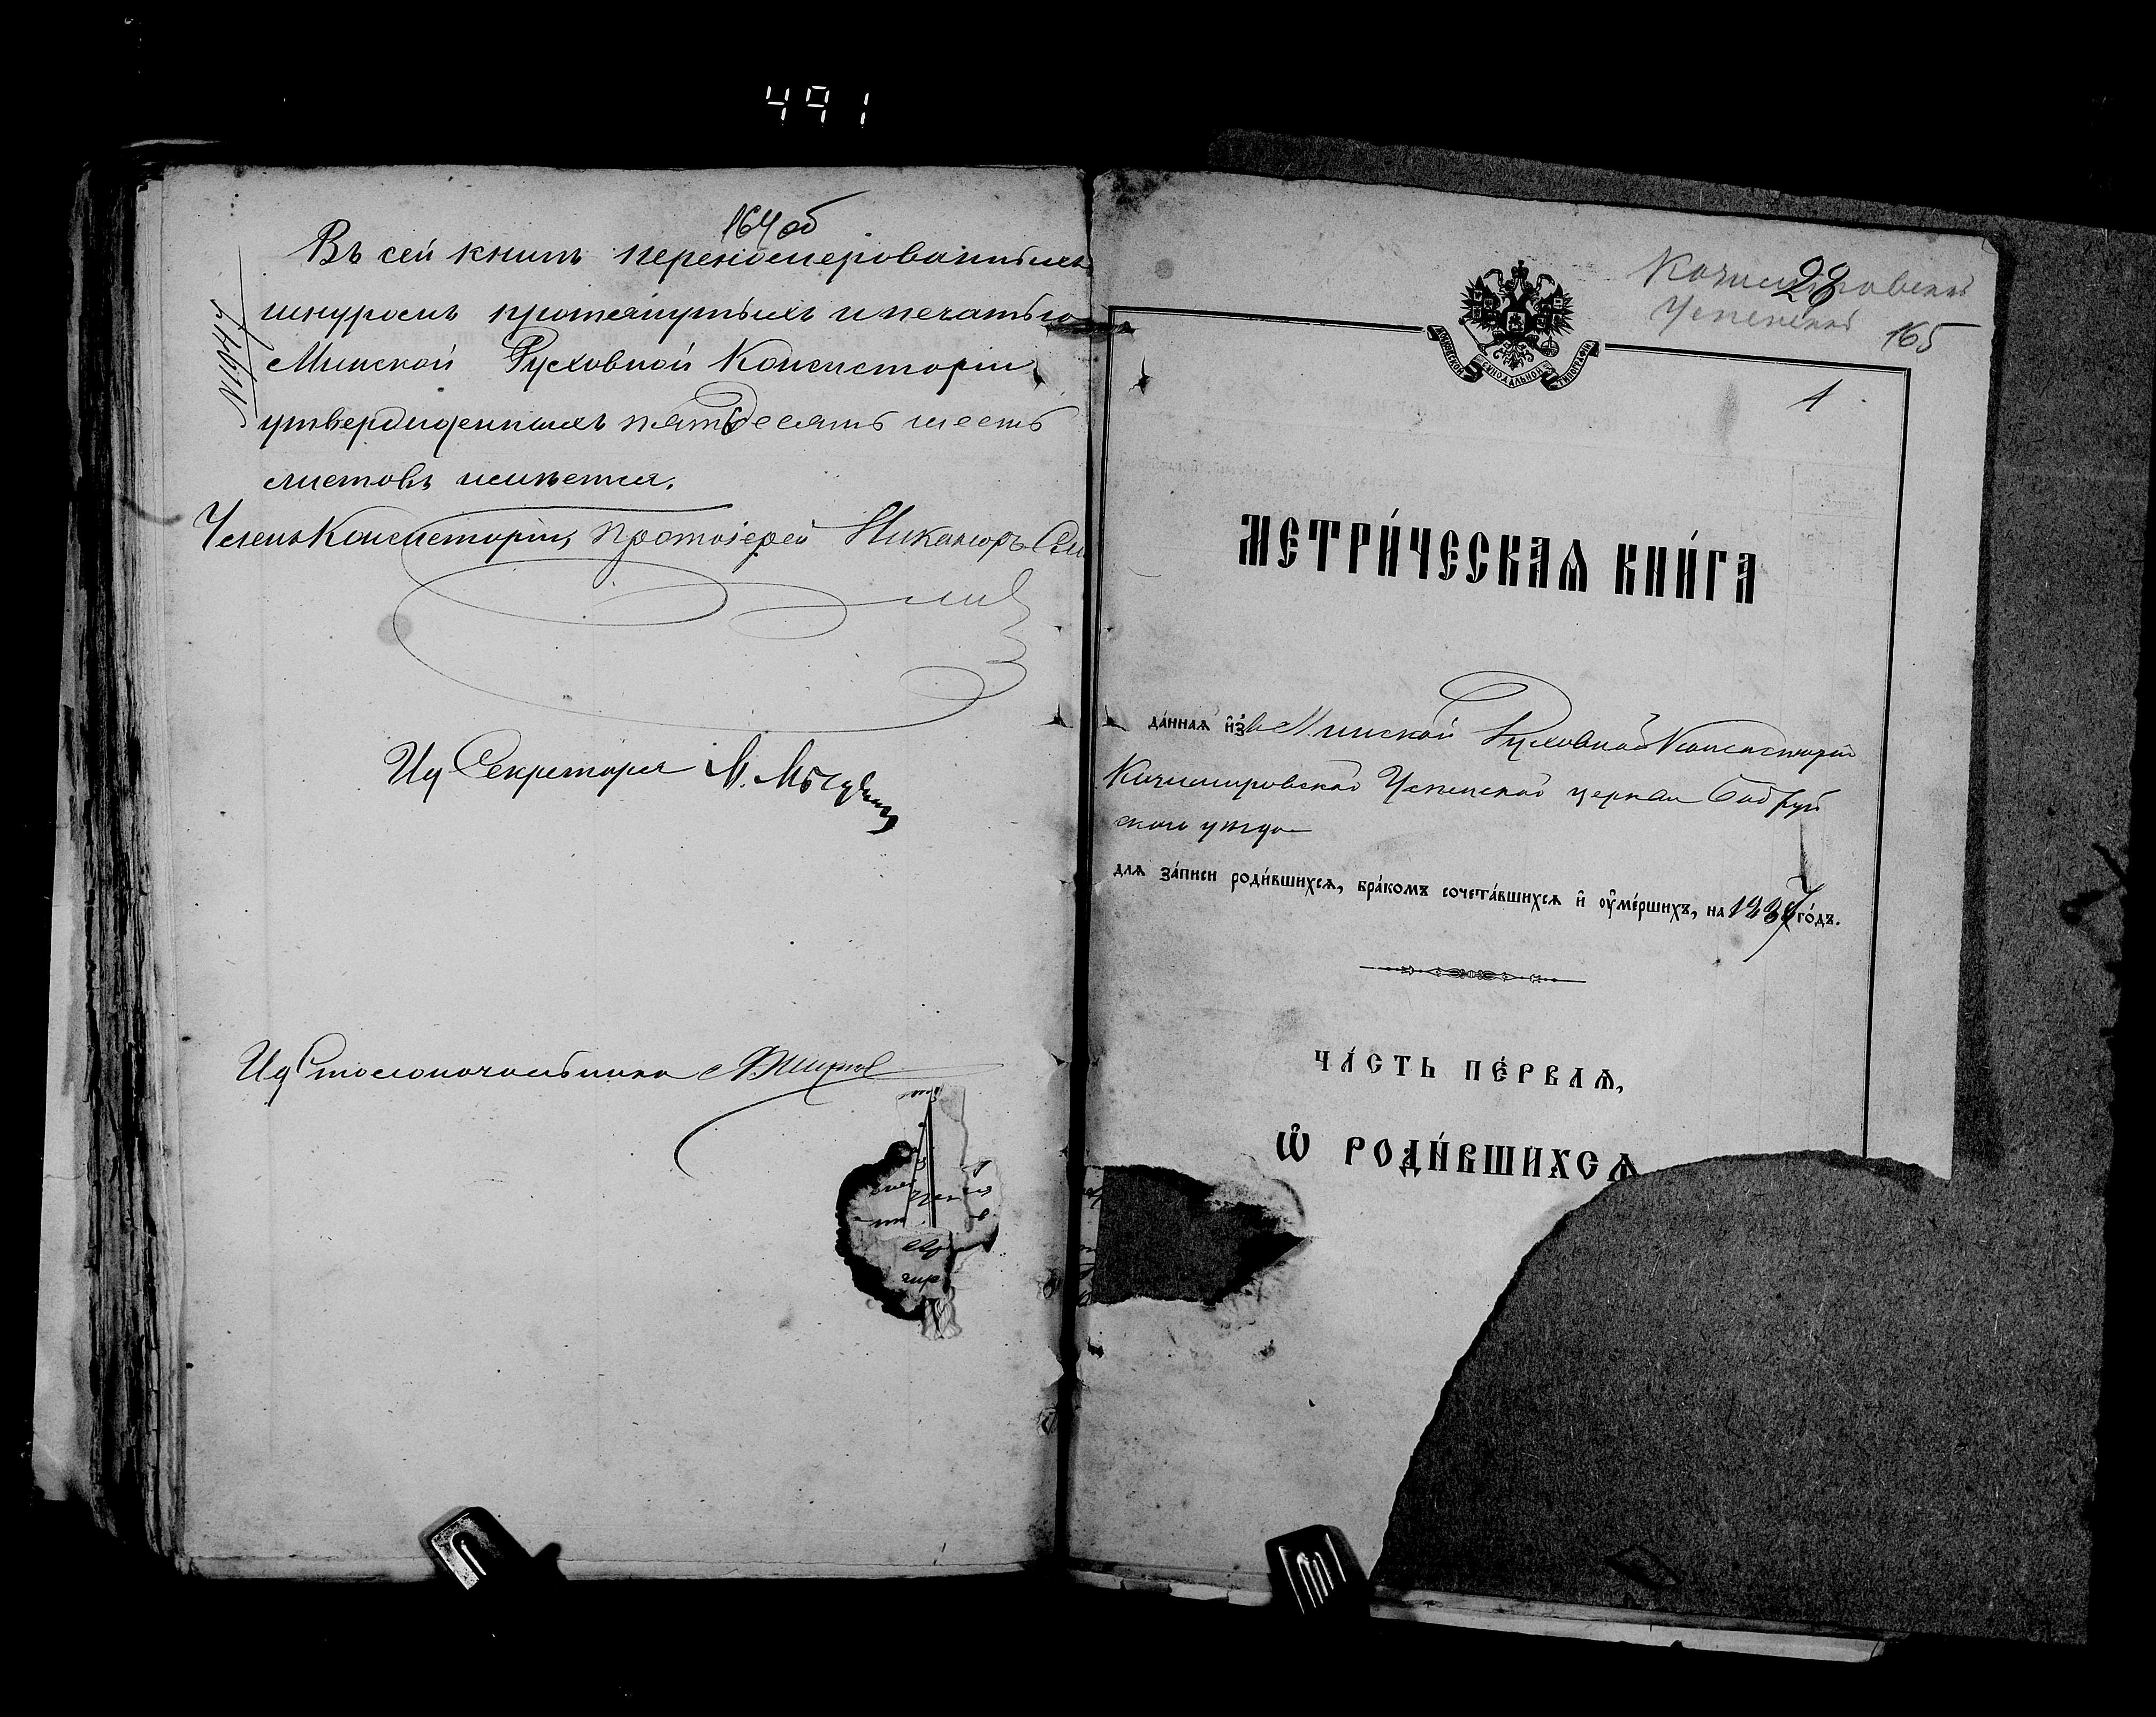 491
164 об
Въ сей книгѣ перенумерованныхъ
шнуромъ протянутыхъ и печатью
Минской Духовной Консисторіи
утвержденныхъ пятьдесятъ шесть
листовъ имѣется.
Членъ Консисторіи, Протоіерей Никаноръ
Ид Секретаря М.
Ид Столоначальника
28
Успенской
165
1
СѴНОДАЛЬНОЙ ТИПОГРАФІИ
МЕТРИ́ЧЕСКАѦ КНИ́ГА
да́ннаѧ и҆зъ Минской Духовной Консисторіи
Казимировской Успенской церкви Бобруй
скаго уѣзда
длѧ за́писи роди́вшихсѧ, бра́комъ сочета́вшихсѧ и҆ оу҆ме́ршихъ, на 1887 го́дъ.
ЧА́СТЬ ПЕ́РВАѦ,
Ѡ҆ РОДИ́ВШИХСѦ